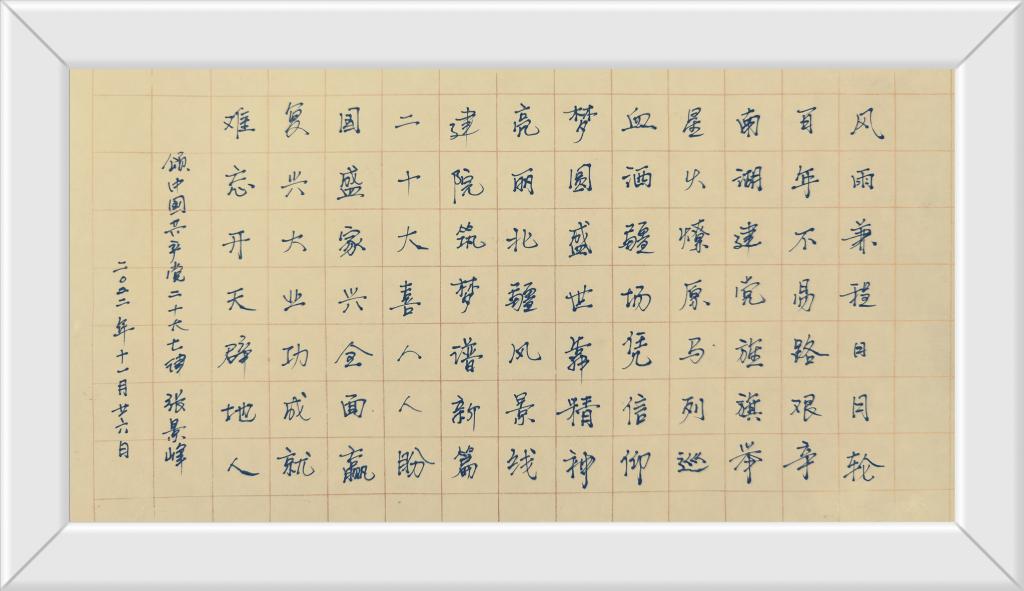 风雨兼程日月轮
百年不易路艰辛
南湖建党旌旗举
星火燎原马列巡
血洒疆场凭信仰
梦圆盛世靠精神
亮丽北疆风景线
建院筑梦谱新篇
二十大喜人人盼
国盛家兴全面赢
复兴大业功成就
难忘开天辟地人
颂中国共产党二十大七律 张景峰
二〇二二年十一月廿六日